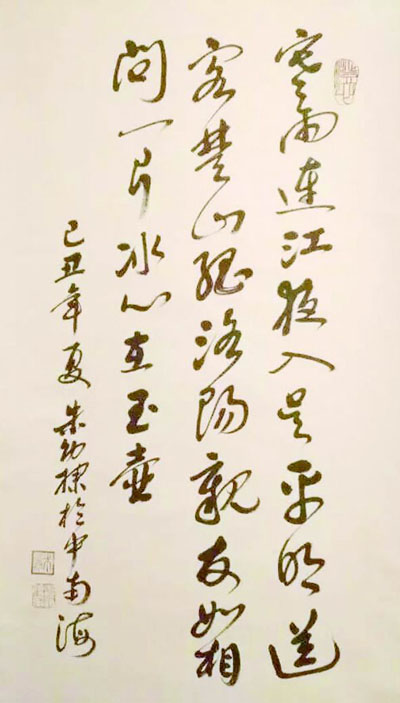 寒雨连江夜入吴平明送
客楚山孤洛阳亲友如相
问一片冰心在玉壶
己丑年夏朱幼棣於中南海